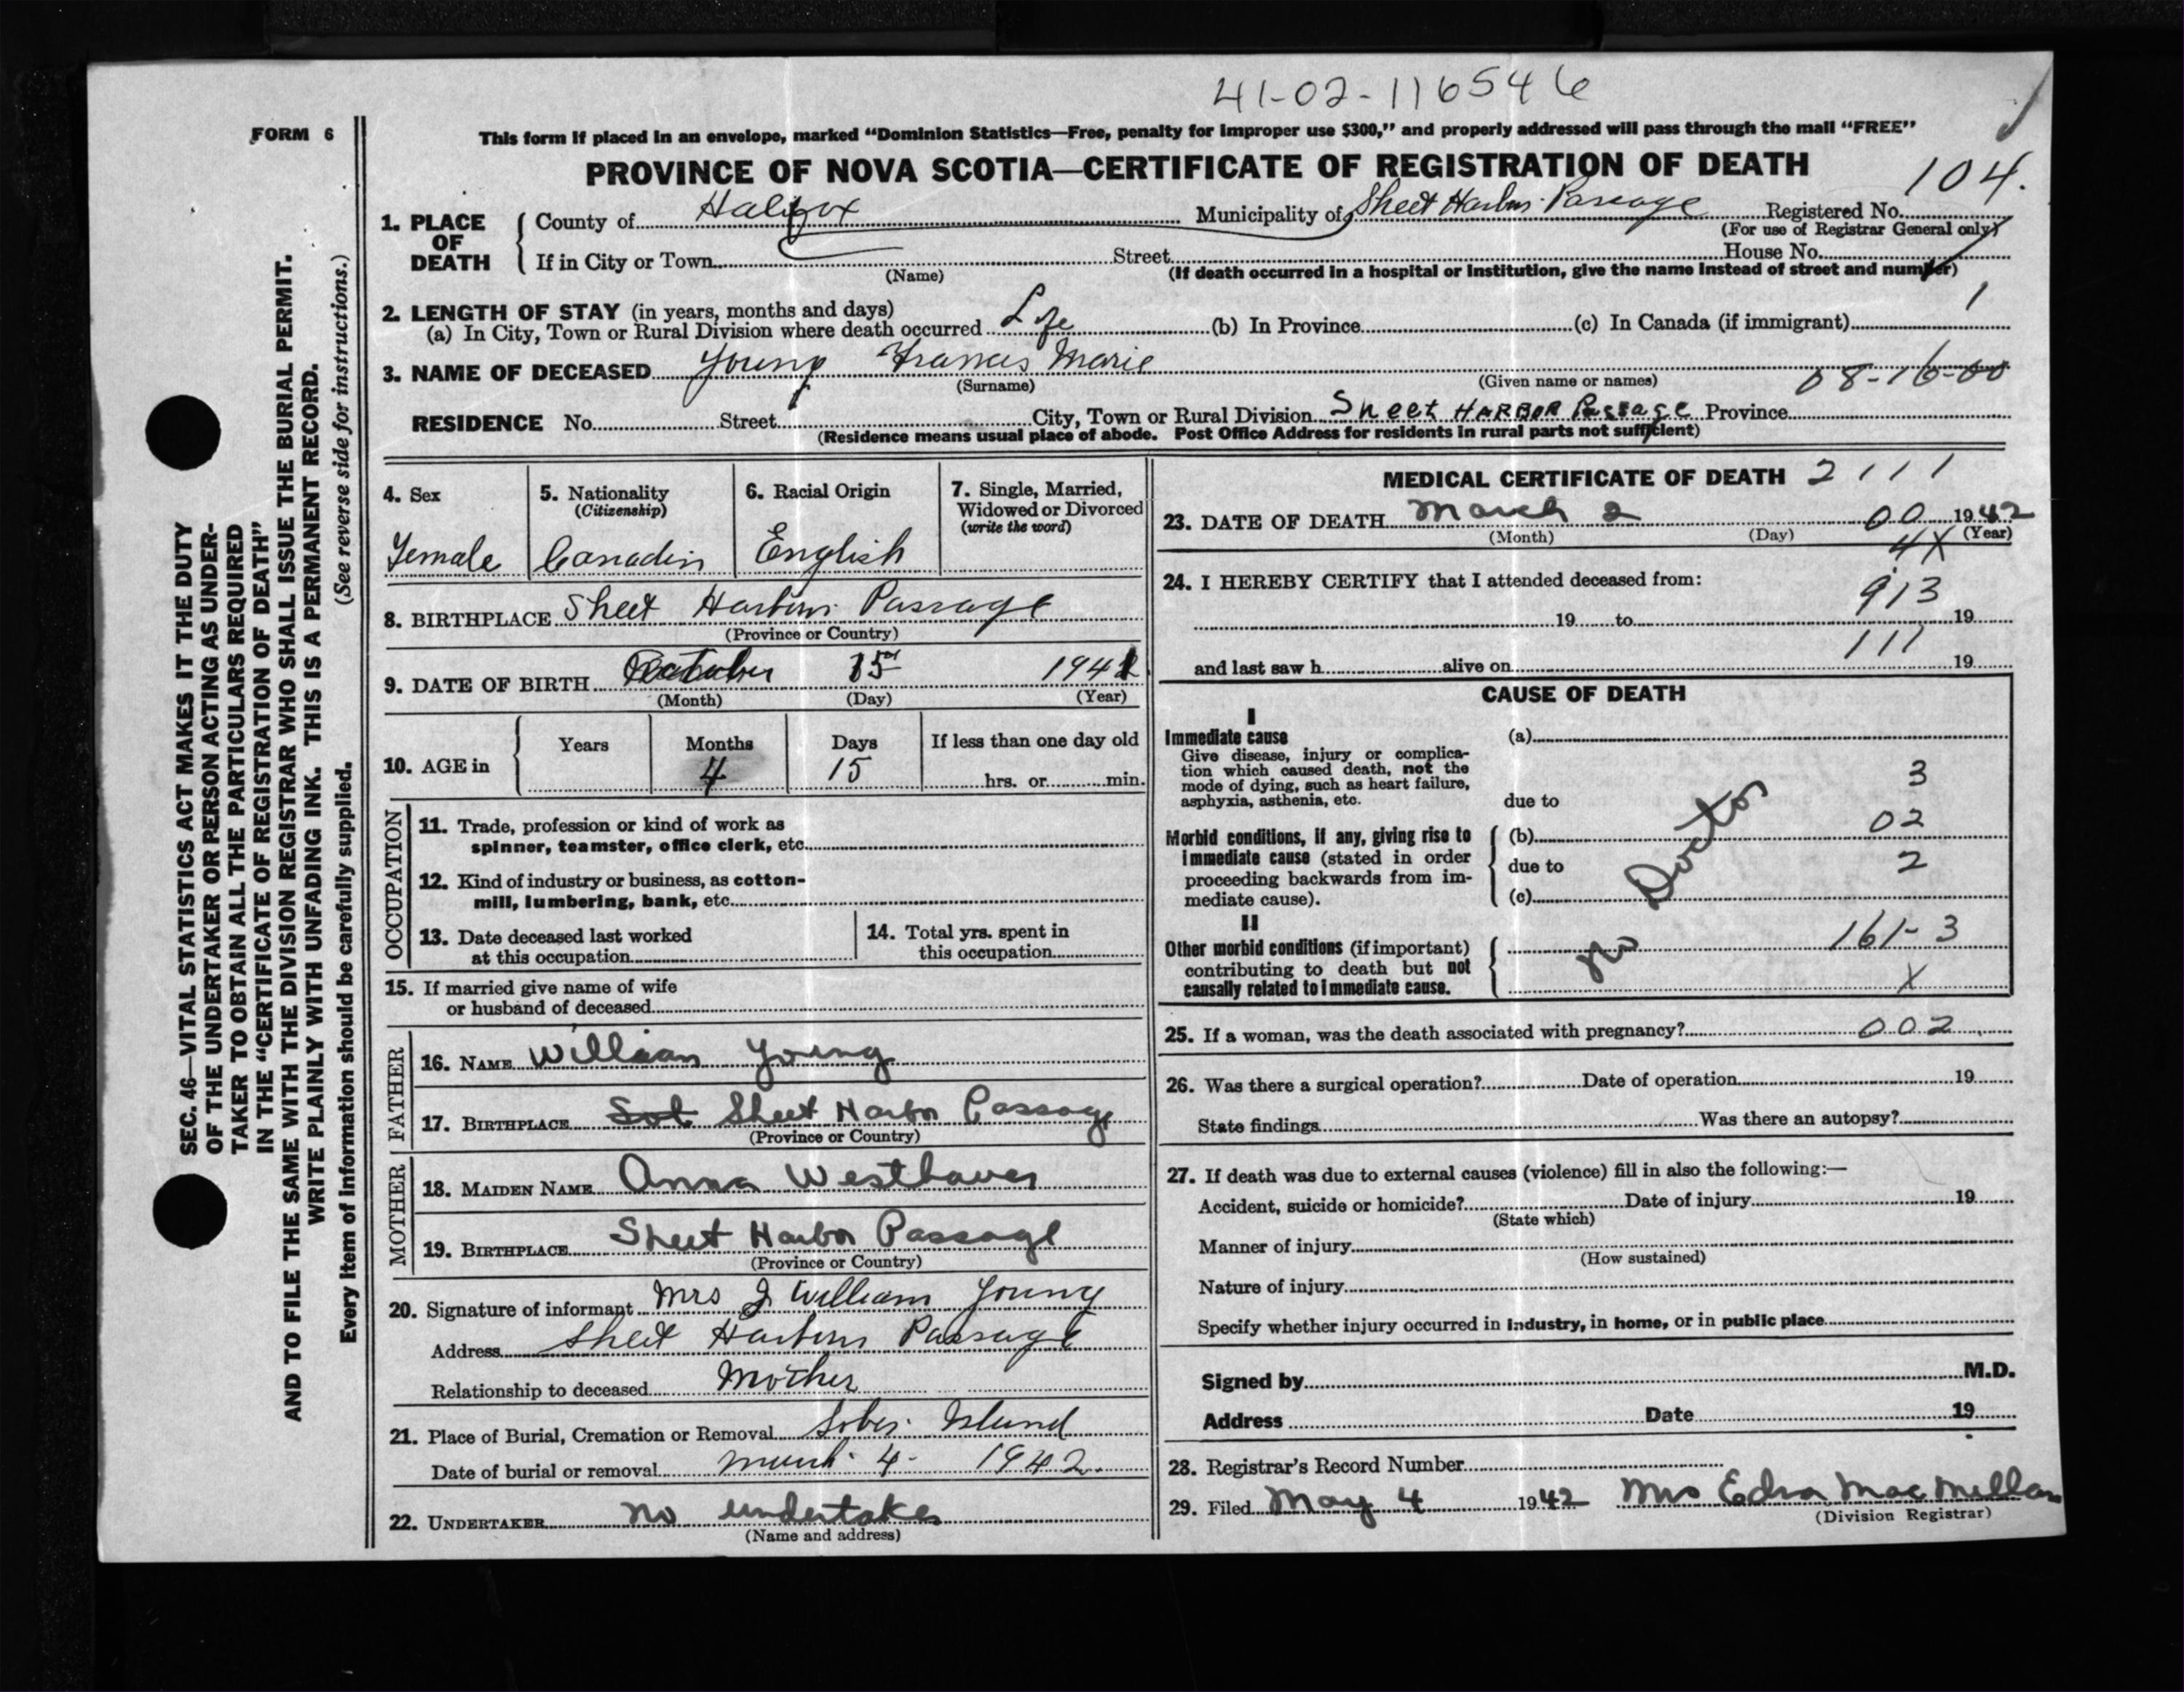 41-02-116546
FORM 6
This form if placed in an envelope, marked "Dominion Statistics—Free, penalty for improper use $300," and properly addressed will pass through the mail "FREE"
PROVINCE OF NOVA SCOTIA—CERTIFICATE OF REGISTRATION OF DEATH
104.
1. PLACE OF DEATH County of Halifax Municipality of Sheet Harbor Passage Registered No.
(For use of Registrar General only)
If in City or Town Street House No.
(Name) (If death occurred in a hospital or institution, give the name instead of street and number)
2. LENGTH OF STAY (in years, months and days) 1
(a) In City, Town or Rural Division where death occurred Life (b) In Province (c) In Canada (if immigrant)
3. NAME OF DECEASED Young Frances Marie
(Surname) (Given name or names) 08-16-00
RESIDENCE No. Street City, Town or Rural Division Sheet HARBOR Passage Province
(Residence means usual place of abode. Post Office Address for residents in rural parts not sufficient)
4. Sex 5. Nationality (Citizenship) 6. Racial Origin 7. Single, Married, Widowed or Divorced (write the word)
Female Canadin English
8. BIRTHPLACE Sheet Harbour Passage
(Province or Country)
9. DATE OF BIRTH October 15 1941
(Month) (Day) (Year)
10. AGE in Years Months Days If less than one day old
4 15 hrs. or min.
OCCUPATION
11. Trade, profession or kind of work as
spinner, teamster, office clerk, etc.
12. Kind of industry or business, as cotton-
mill, lumbering, bank, etc.
13. Date deceased last worked at this occupation 14. Total yrs. spent in this occupation
15. If married give name of wife
or husband of deceased
FATHER
16. NAME William Young
17. BIRTHPLACE Sheet Harbor Passage
(Province or Country)
MOTHER
18. MAIDEN NAME Anna Westhaver
19. BIRTHPLACE Sheet Harbor Passage
(Province or Country)
20. Signature of informant Mrs J William Young
Address Sheet Harbour Passage
Relationship to deceased Mother
21. Place of Burial, Cremation or Removal Sober Island
Date of burial or removal March 4 - 1942.
22. UNDERTAKER no undertaker
(Name and address)
MEDICAL CERTIFICATE OF DEATH 2111
23. DATE OF DEATH March 2 00 1942
(Month) (Day) (Year)
4X
24. I HEREBY CERTIFY that I attended deceased from:
913
19 to 19
111
and last saw h alive on 19
CAUSE OF DEATH
I
Immediate cause (a)
Give disease, injury or complica-
tion which caused death, not the
mode of dying, such as heart failure, 3
asphyxia, asthenia, etc. due to
Morbid conditions, if any, giving rise to (b) 02
immediate cause (stated in order due to 2
proceeding backwards from im-
mediate cause). (c)
No Doctor
II
Other morbid conditions (if important) 161-3
contributing to death but not X
causally related to immediate cause.
25. If a woman, was the death associated with pregnancy? 002
26. Was there a surgical operation? Date of operation 19
State findings Was there an autopsy?
27. If death was due to external causes (violence) fill in also the following:—
Accident, suicide or homicide? Date of injury 19
(State which)
Manner of injury
(How sustained)
Nature of injury
Specify whether injury occurred in industry, in home, or in public place
Signed by M.D.
Address Date 19
28. Registrar's Record Number
29. Filed May 4 1942 Mrs Edna MacMillan
(Division Registrar)
SEC. 46—VITAL STATISTICS ACT MAKES IT THE DUTY
OF THE UNDERTAKER OR PERSON ACTING AS UNDER-
TAKER TO OBTAIN ALL THE PARTICULARS REQUIRED
IN THE "CERTIFICATE OF REGISTRATION OF DEATH"
AND TO FILE THE SAME WITH THE DIVISION REGISTRAR WHO SHALL ISSUE THE BURIAL PERMIT.
WRITE PLAINLY WITH UNFADING INK. THIS IS A PERMANENT RECORD.
Every item of information should be carefully supplied. (See reverse side for instructions.)